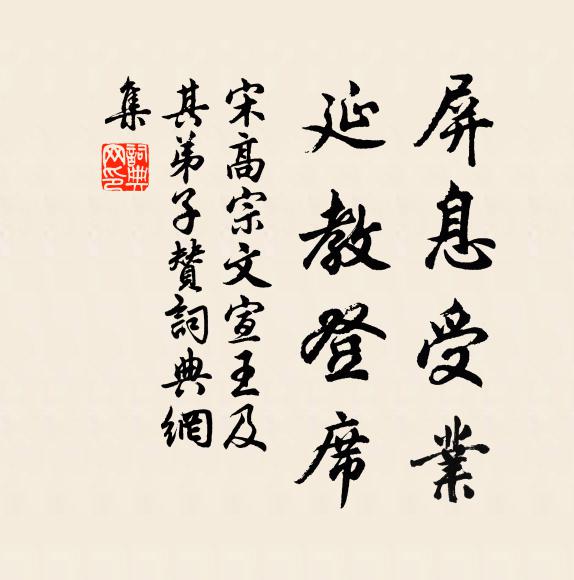 屏息受業
延教登席
宋高宗文宣王及
其弟子贊詞典網
集
詞典
网印